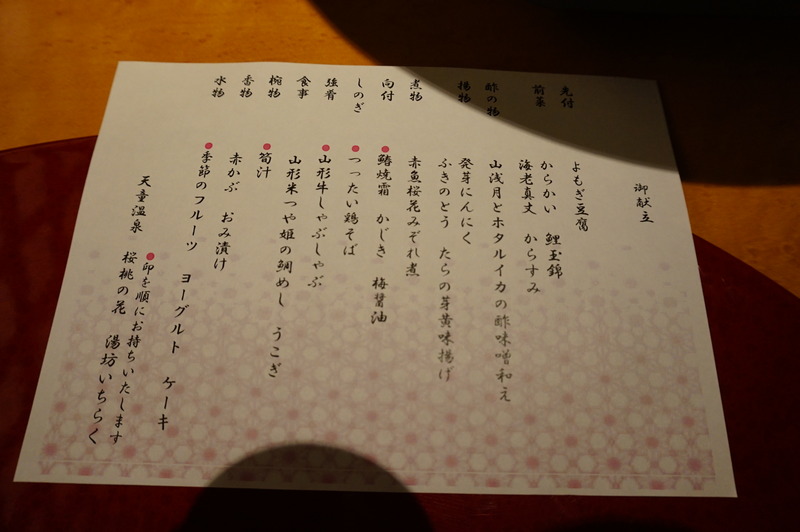 御献立
先付 よもぎ豆腐
前菜 からかい 鯉玉錦
海老真丈 からすみ
酢の物 山浅月とホタルイカの酢味噌和え
揚物 発芽にんにく
ふきのとう たらの芽黄味揚げ
煮物 赤魚桜花みぞれ煮
向付 ●鰆焼霜 かじき 梅醤油
しのぎ ●つったい鶏そば
強肴 ●山形牛しゃぶしゃぶ
食事 山形米つや姫の鯛めし うこぎ
椀物 ●筍汁
香物 赤かぶ おみ漬け
水物 ●季節のフルーツ ヨーグルト ケーキ
●印を順にお持ちいたします
天童温泉 桜桃の花 湯坊いちらく